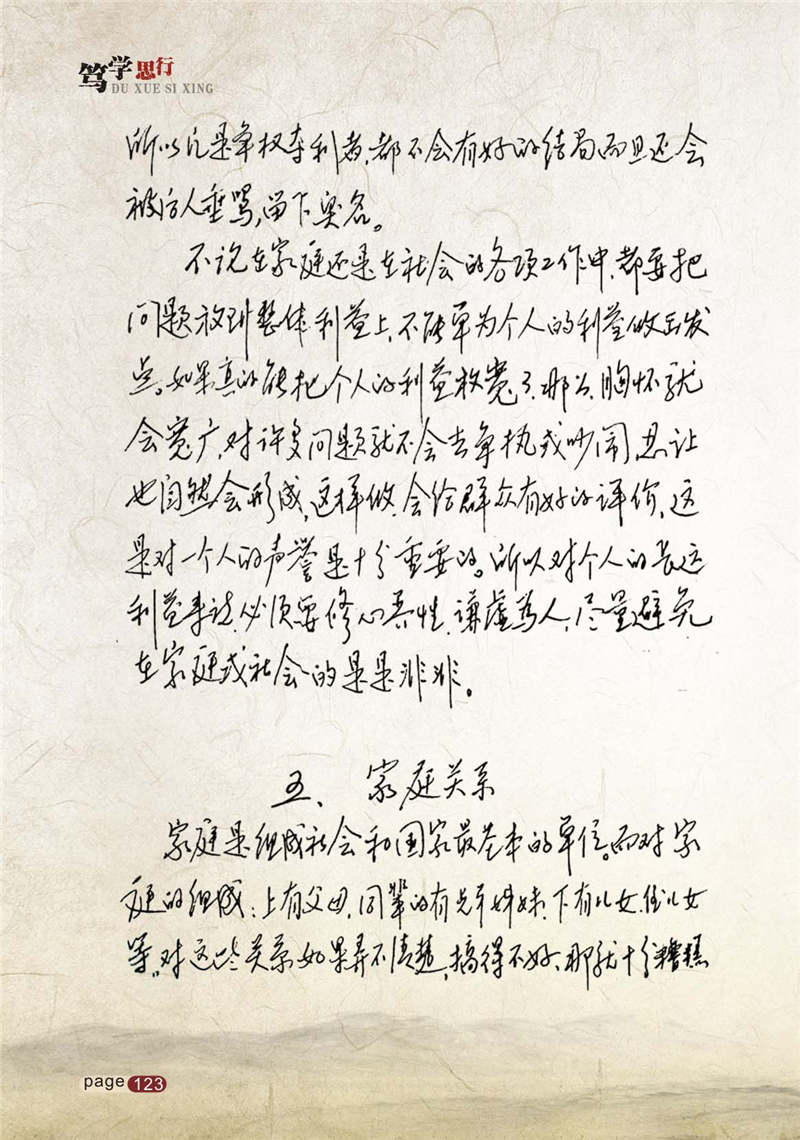 笃学思行
DU XUE SI XING
所以凡是争权夺利者,都不会有好的结局而且还会
被后人垂骂,留下臭名。
不说在家庭还是在社会的各项工作中,都要把
问题放到整体利益上,不能单为个人的利益做出发
点。如果真的能把个人的利益放宽了,那么,胸怀就
会宽广,对许多问题就不会去争执或吵闹,忍让
也自然会形成,这样做,会给群众有好的评价,这
是对一个人的声誉是十分重要的。所以对个人的长远
利益来说,必须要修心养性,谦虚为人,尽量避免
在家庭或社会的是是非非。
五、家庭关系
家庭是组成社会和国家最基本的单位。而对家
庭的组成:上有父母,同辈的有兄弟姊妹,下有儿女,侄儿女
等。对这些关系如果弄不清楚,搞得不好,那就十分糟糕
page 123